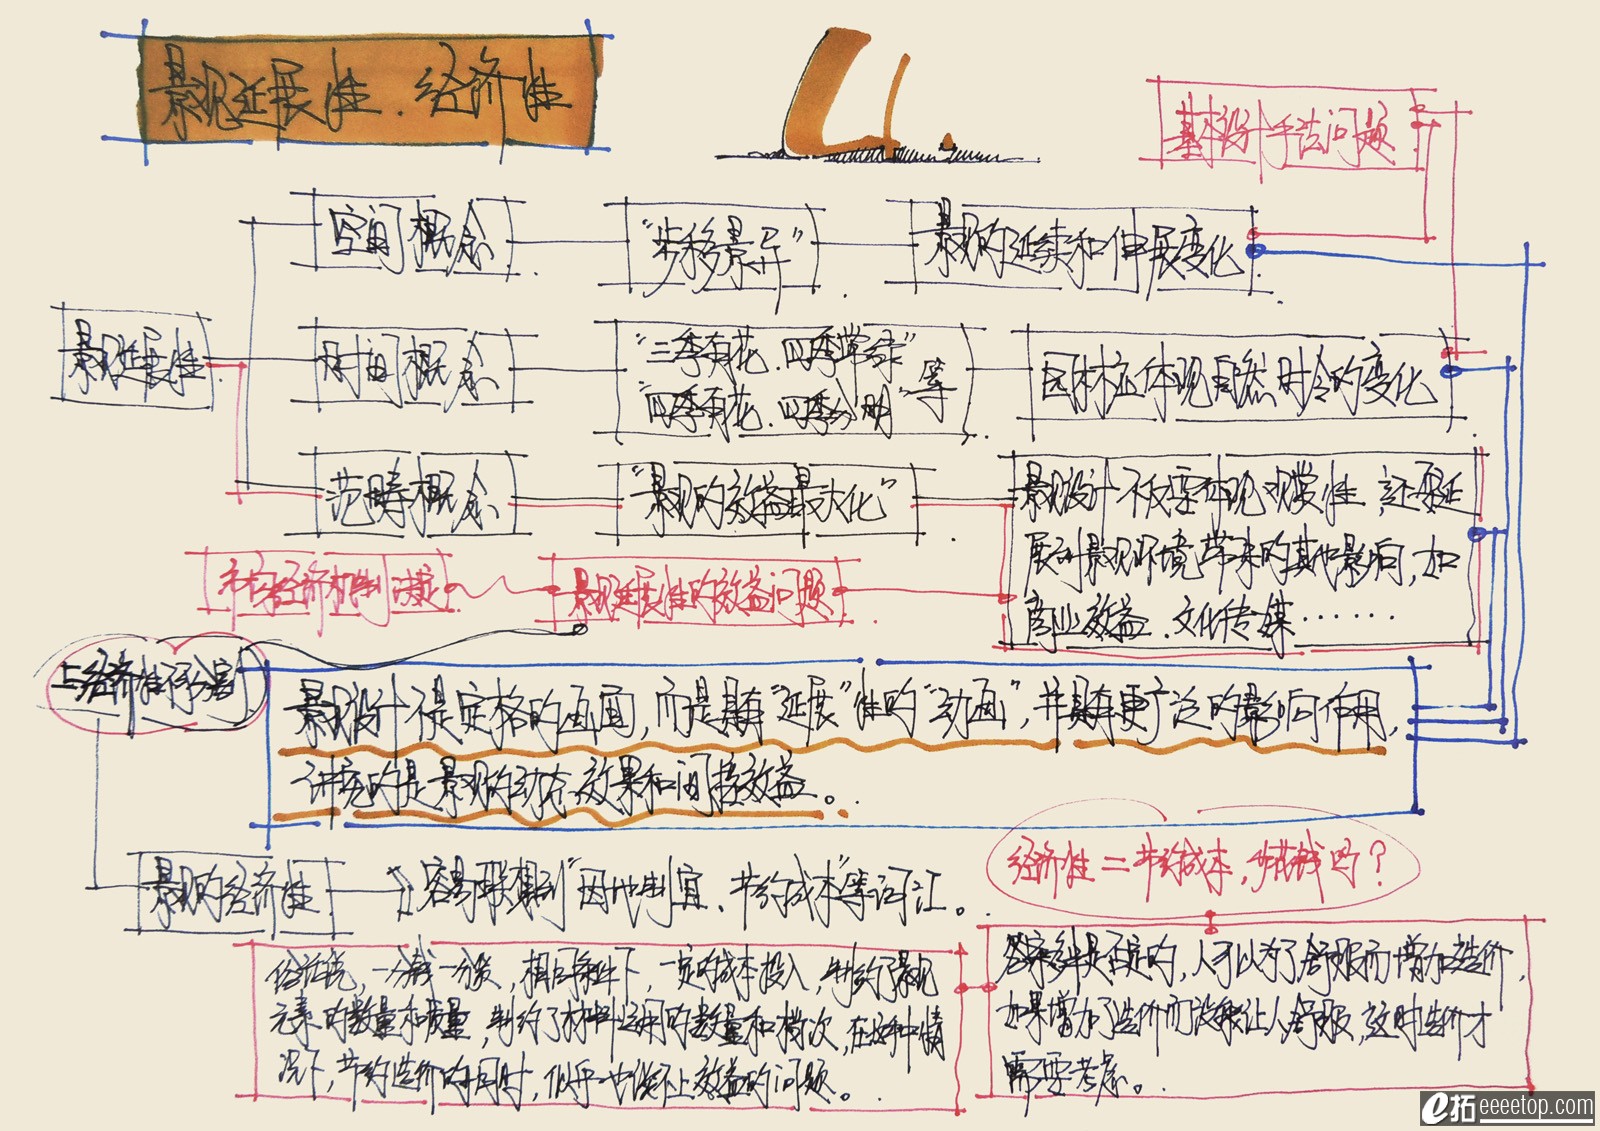 景观延展性.经济性
4.
基本设计手法问题
空间概念
"步移景异"
景观的延续和伸展变化
景观延展性
时间概念
"三季有花.四季常绿"
"四季有花.四季分明"等
园林应体现自然时令的变化
范畴概念
"景观的效益最大化"
景观设计不仅要体现观赏性,还要延
展到景观环境带来的其他影响,如
商业效益.文化传媒……
市场经济机制
景观延展性的效益问题
与经济性不分割
景观设计不是定格的画面,而是具有"延展"性的"动画",并具有更广泛的影响作用,
讲究的是景观的动态效果和间接效益。
经济性=节约成本,少花钱吗?
景观的经济性
容易联想到"因地制宜、节约成本"等词汇。
俗话说,一分钱一分货,相同条件下,一定的成本投入,制约了景观
元素的数量和质量,制约了材料运用的数量和档次,在这种情
况下,节约造价的同时,似乎也谈不上效益的问题。
答案是否定的,人可以为了舒服而增加造价,
如果增加了造价而没能让人舒服,这时造价才
需要考虑。
e拓 eeeetop.com